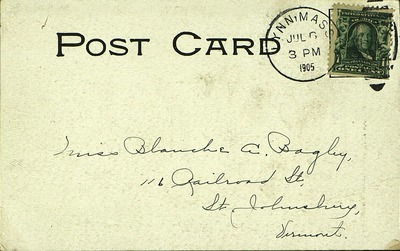 POST CARD
LYNN, MASS.
JUL 6
3 PM
1905
Miss Blanche A. Bagley,
116 Railroad St,
St. Johnsbury,
Vermont.